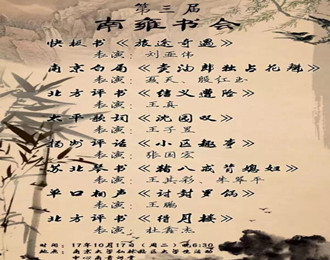 第三届
南雍书会
快板书《旅途奇遇》
表演：刘亚伟
南京白局《卖油郎独占花魁》
表演：聂天、殷红玉
北方评书《结义遭险》
表演：王真
太平歌词《沈园叹》
表演：王子昱
扬州评话《小区趣事》
表演：张国宏
苏北琴书《猪八戒背媳妇》
表演：王其彩、朱翠平
单口相声《讨封罗锅》
表演：王鹏
北方评书《待月楼》
表演：杜鑫杰
17年10月17日（周二）晚6:30